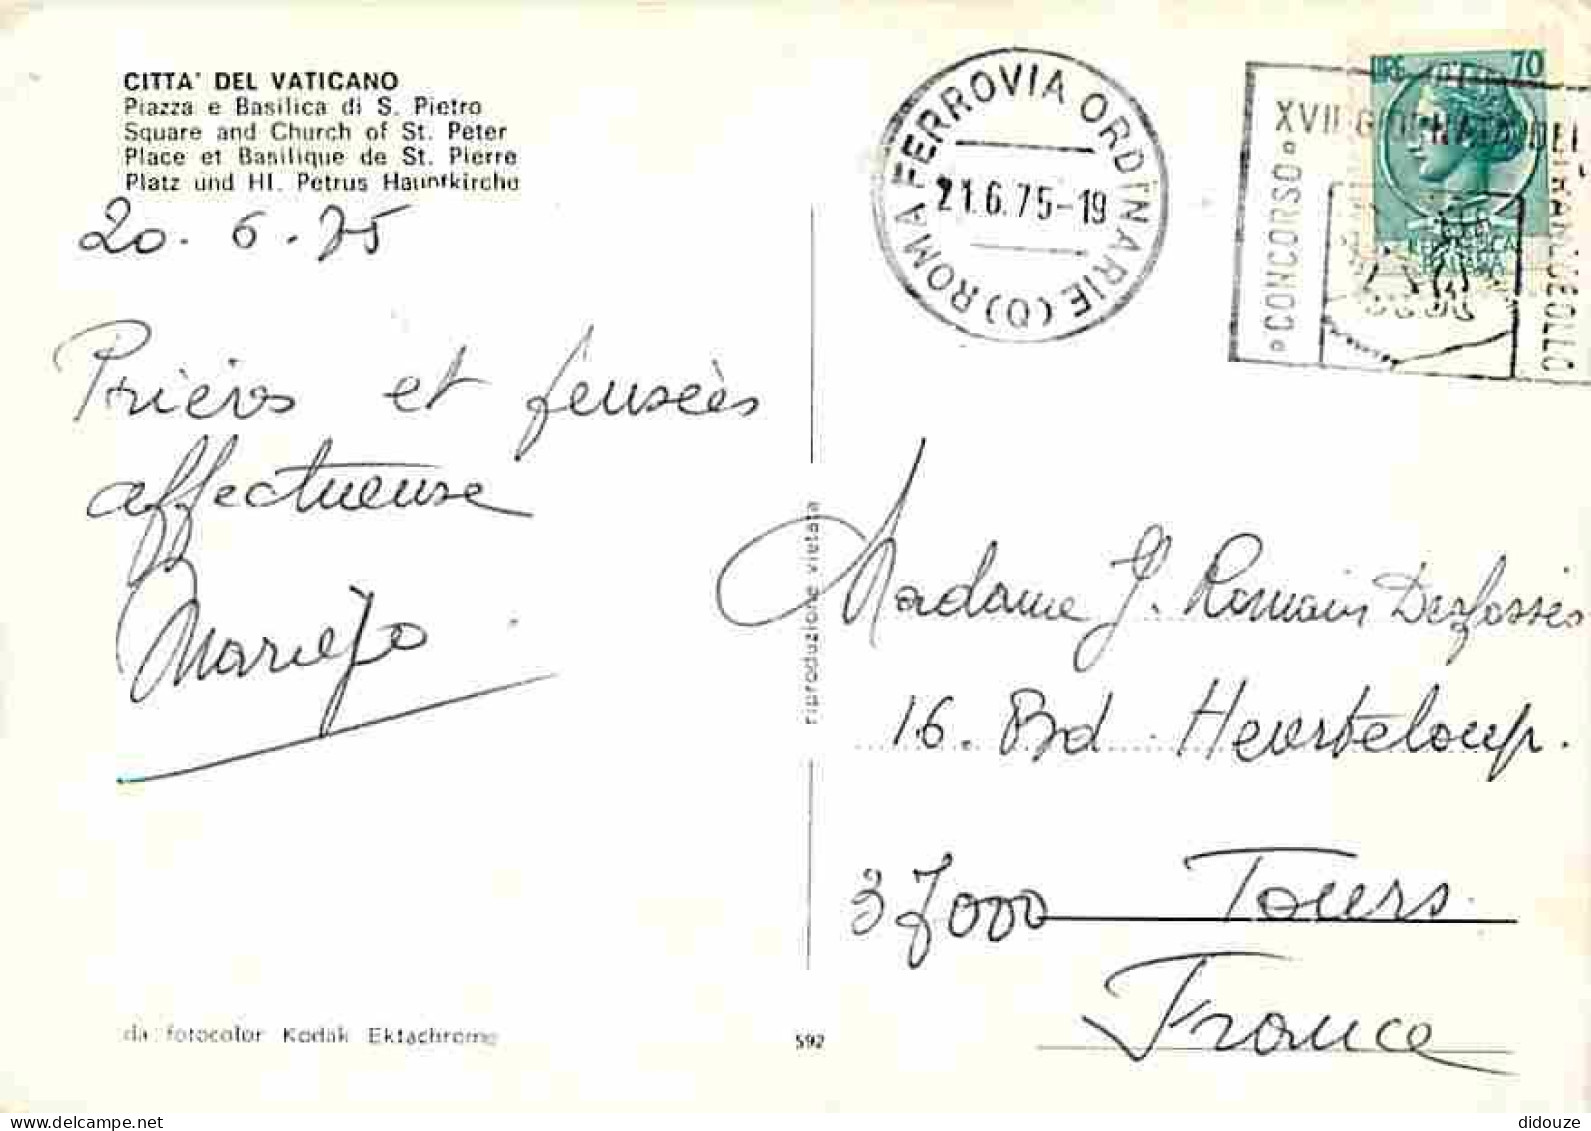 CITTA' DEL VATICANO
Piazza e Basilica di S. Pietro
Square and Church of St. Peter
Place et Basilique de St. Pierre
Platz und Hl. Petrus Hauptkirche
20. 6. 75
Prières et pensées
affectueuse
MarieJo
da fotocolor Kodak Ektachrome
592
riproduzione vietata
ROMA FERROVIA ORDINARIE (O)
21.6.75-19
LIRE 70
XVII GIORNATA DEL
CONCORSO
FRANCOBOLLO
REPUBBLICA
ITALIANA
Madame J. Romain Desfossés
16. Bd. Heurteloup.
37000 Tours
France
didouze